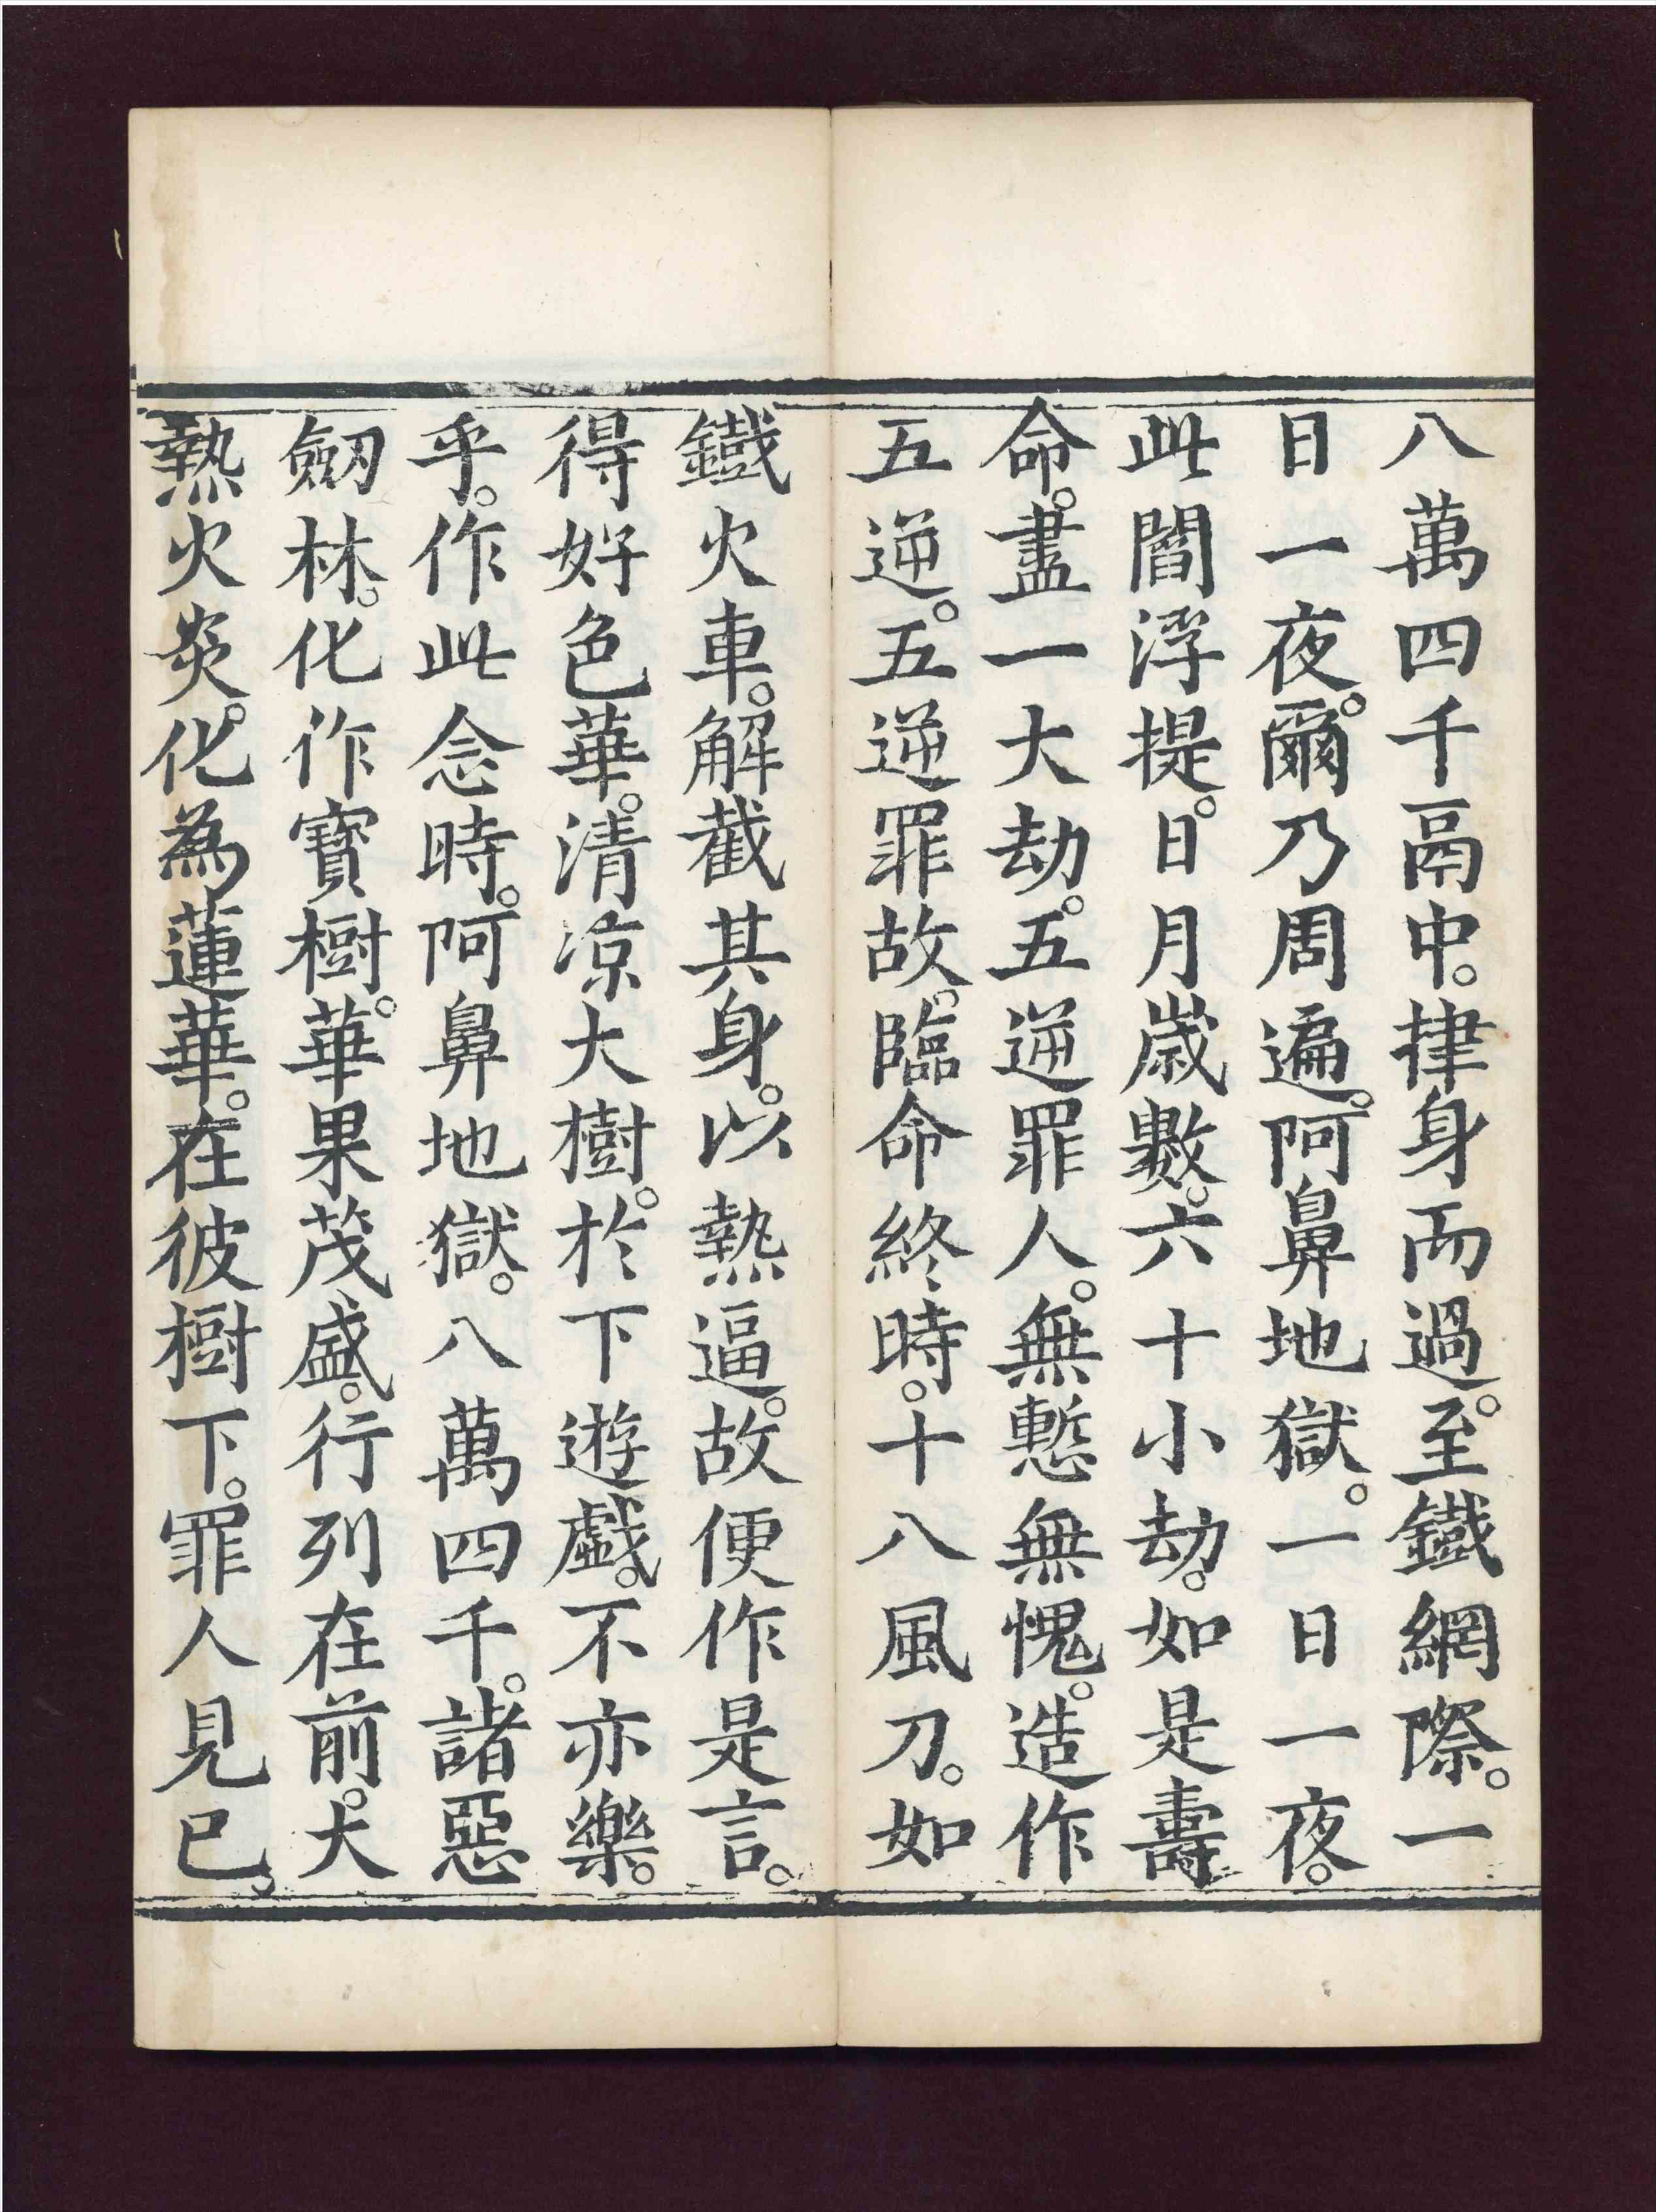 八萬四千鬲中。㨗身而過。至鐵網際。一
日一夜。爾乃周遍。阿鼻地獄。一日一夜。
此閻浮提。日月歲數。六十小劫。如是壽
命。盡一大劫。五逆罪人。無慙無愧。造作
五逆。五逆罪故。臨命終時。十八風刀。如
鐵火車。解截其身。以熱逼。故便作是言。
得好色華。清凉大樹。於下遊戲。不亦樂。
乎。作此念時。阿鼻地獄。八萬四千。諸惡
劒林。化作寶樹。華果茂盛。行列在前。大
熱火炎。化為蓮華。在彼樹下。罪人見已。